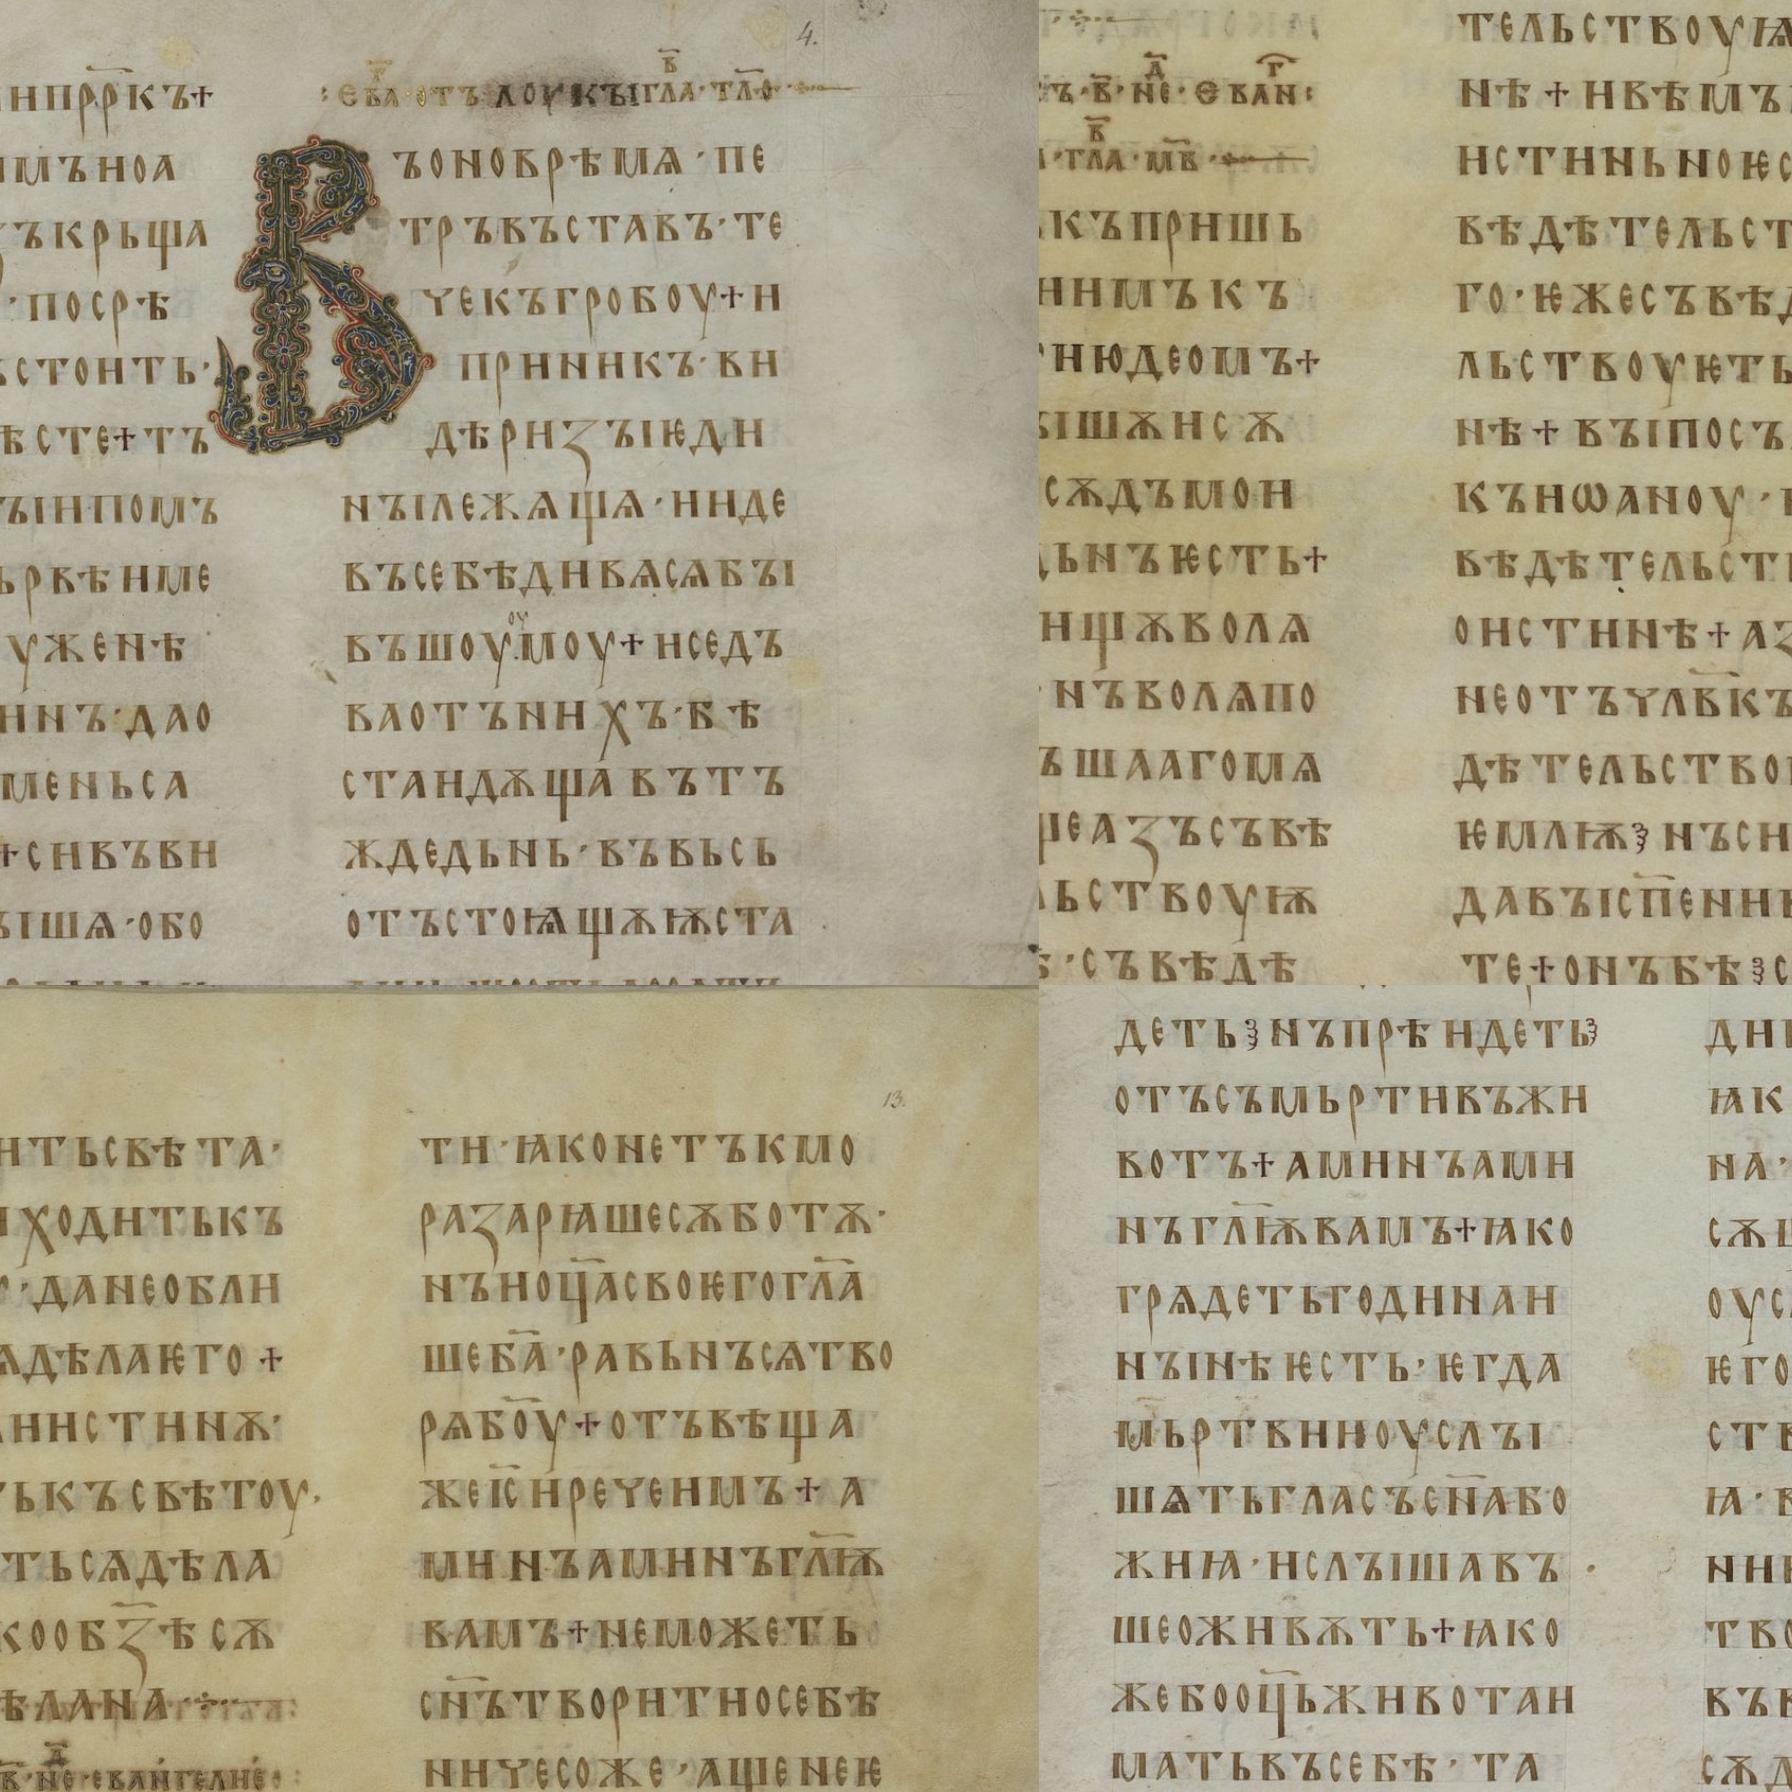 4.
ИНПР҃РКЪ+
ИМЪНОА
ЪКРЬЩА
·ПОСРѢ
СТОИТЬ·
ѢСТЕ+ТЪ
ЪІИПОМЪ
ЬРВѢИМЕ
УЖЕНѢ
ИНЪ·ДАО
МЕНЬСА
+СИВЪВИ
ЪІШѦ·ОБО
ЕВА·ОТЪ ЛОУКЪІ ГЛА·ТЛ҃О
ВЪОНОВРѢМѦ·ПЕ
ТРЪВЪСТАВЪ·ТЕ
ЧЕКЪГРОБОУ+И
ПРИНИКЪ·ВИ
ДѢРИꙀЪІѤДИ
НЪІЛЕЖѦЩѦ·ИИДЕ
ВЪСЕБѢДИВѦСѦБЪІ
ВЪШОУМОУ+ИСЕДЪ
ВАОТЪНИХЪ·БѢ
СТАИДѪЩАВЪТЪ
ЖДЕДЬНЬ·ВЪВЬСЬ
ОТЪСТОꙖЩѪѬСТА
Ъ·В҃·НЕ·ЕВАН:
·ГЛА·МВ҃·
КЪПРИШЬ
НИМЪКЪ
ИЮДЕОМЪ+
ЪІШѪИСѪ
СѪДЪМОИ
ДЬНЪѤСТЬ+
ИЩѪВОЛѦ
·НЪВОЛѦПО
ЪШААГОМѦ
ЩЕАꙀЪСЪВѢ
ЛЬСТВОУѬ
·СЪВѢДѢ
ТЕЛЬСТВОУѨ
НѢ+ИВѢМЪ
ИСТИНЬНОѤС
ВѢДѢТЕЛЬСТ
ГО·ѤЖЕСЪВѢД
ЛЬСТВОУѤТЬ
НѢ+ВЪІПОСЪ
КЪИѠАНОУ·
ВѢДѢТЕЛЬСТ
ОИСТИНѢ+АꙀ
НЕОТЪЧЛВ҃КЪ
ДѢТЕЛЬСТВО
ѤМЛѬ⁝НЪСИ
ДАВЪІСП҃ЕНИ
ТЕ+ОНЪБѢ⁝С
ИТЬСВѢТА·
ИХОДИТЬКЪ
·ДАНЕОБЛИ
ѦДѢЛАѤГО+
ИИСТИНѪ·
ЬКЪСВѢТОУ·
ТЬСѦДѢЛА
КООБꙀ҃ѢСѪ
ѢЛАНА
В҃·НЕ·ЕВАНГЕЛИЕ:
13.
ТИ·ꙖКОНЕТЪКМО
РАꙀАРꙖШЕСѪБОТѪ·
НЪИОЦ҃АСВОѤГОГЛ҃А
ШЕБ҃А·РАВЬНЪСѦТВО
РѦБ҃ОУ+ОТЪВѢЩА
ЖЕІС҃ИРЕЧЕИМЪ+А
МИНЪАМИНЪГЛ҃Ѭ
ВАМЪ+НЕМОЖЕТЬ
СН҃ЪТВОРИТИОСЕБѢ
НИЧЕСОЖЕ·АЩЕНЕѤ
ДЕТЬ⁝НЪПРѢИДЕТЬ⁝
ОТЪСЪМЬРТИВЪЖИ
ВОТЪ+АМИНЪАМИ
НЪГЛ҃ѬВАМЪ+ꙖКО
ГРѦДЕТЬГОДИНАИ
НЪІНѢѤСТЬ·ѤГДА
МЬРТВИИОУСЛЪІ
ШѦТЬГЛАСЪСН҃АБО
ЖИꙖ·ИСЛЪІШАВЪ
ШЕОЖИВѪТЬ+ꙖКО
ЖЕБООЦ҃ЬЖИВОТАИ
МАТЬВЪСЕБѢ·ТА
ДН
ꙖК
НА·
СѪЩ
ОУС
ѤГО
СТВ
Ꙗ·В
НИ
ТВО
ВЪВ
СѪД